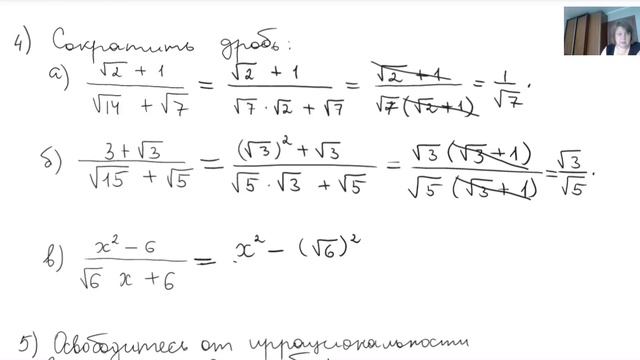 4) Сократить дробь:
а) (√2 + 1)/(√14 + √7) = (√2 + 1)/(√7 · √2 + √7) = (√2 + 1)/(√7(√2+1)) = 1/√7 .
б) (3 + √3)/(√15 + √5) = ((√3)² + √3)/(√5 · √3 + √5) = (√3(√3+1))/(√5(√3+1)) = √3/√5 .
в) (x² − 6)/(√6 x + 6) = x² − (√6)²
5) Освободитесь от иррациональности